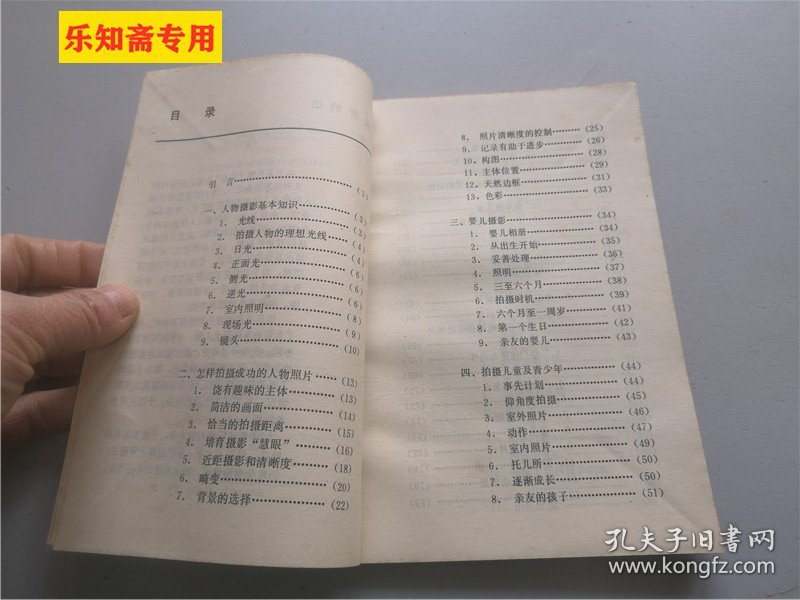 乐知斋专用
目 录
引 言………………(1)
一、人物摄影基本知识………(3)
1. 光线………………(3)
2. 拍摄人物的理想光线………(4)
3. 日光………………(4)
4. 正面光………………(6)
5. 侧光………………(6)
6. 逆光………………(6)
7. 室内照明………………(8)
8. 现场光………………(9)
9. 镜头………………(10)
二、怎样拍摄成功的人物照片………(13)
1. 饶有趣味的主体………(13)
2. 简洁的画面………(14)
3. 恰当的拍摄距离………(15)
4. 培育摄影“慧眼”………(16)
5. 近距摄影和清晰度………(18)
6. 畸变………………(20)
7. 背景的选择………………(22)
8. 照片清晰度的控制………(25)
9. 记录有助于进步………(26)
10. 构图………………(28)
11. 主体位置………………(29)
12. 天然边框………………(31)
13. 色彩………………(33)
三、婴儿摄影………………(34)
1. 婴儿相册………………(34)
2. 从出生开始………………(35)
3. 妥善处理………………(36)
4. 照明………………(37)
5. 三至六个月………………(38)
6. 拍摄时机………………(39)
7. 六个月至一周岁………(41)
8. 第一个生日………………(42)
9. 亲友的婴儿………………(43)
四、拍摄儿童及青少年………(44)
1. 事先计划………………(44)
2. 仰角度拍摄………………(45)
3. 室外照片………………(46)
4. 动作………………(47)
5. 室内照片………………(49)
6. 托儿所………………(50)
7. 逐渐成长………………(50)
8. 亲友的孩子………………(51)
孔夫子旧书网
www.kongfz.com